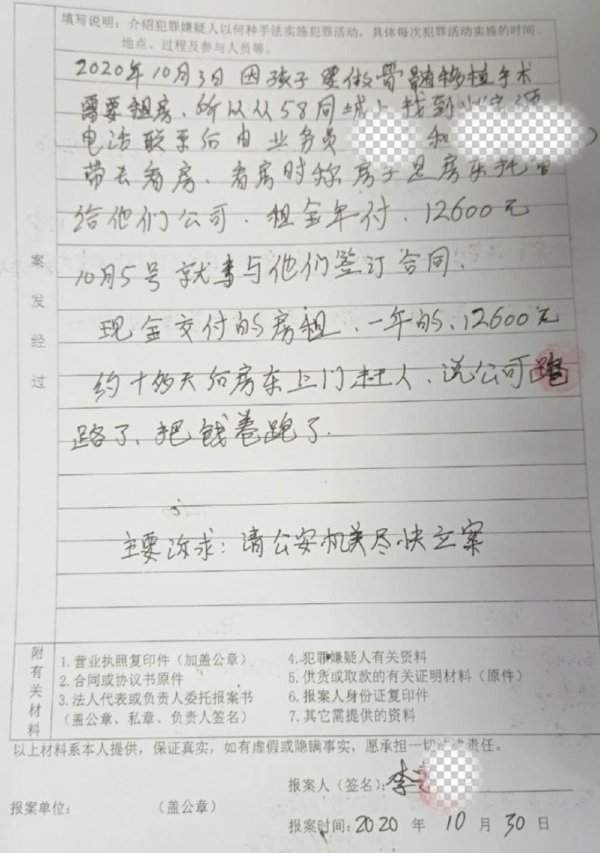 填写说明：介绍犯罪嫌疑人以何种手法实施犯罪活动，具体每次犯罪活动实施的时间、
地点、过程及参与人员等。
案发经过
2020年10月3日因孩子要做骨髓移植手术
需要租房、所以从58同城上找到
电话联系后由业务员 和
带去看房、看房时称房子是房东托管
给他们公司．租金年付．12600元
10月5号就与他们签订合同．
现金交付的房租、一年的、12600元
约十两天后房东上门赶人、说公司跑
路了、把钱卷跑了．
主要诉求：请公安机关尽快立案
附有关材料
1.营业执照复印件（加盖公章） 4.犯罪嫌疑人有关资料
2.合同或协议书原件 5.供货或取款的有关证明材料（原件）
3.法人代表或负责人委托报案书 6.报案人身份证复印件
（盖公章、私章、负责人签名） 7.其它需提供的资料
以上材料系本人提供，保证真实，如有虚假或隐瞒事实，愿承担一切法律责任。
报案人（签名）：李
报案单位： （盖公章）
报案时间：2020 年 10 月 30 日